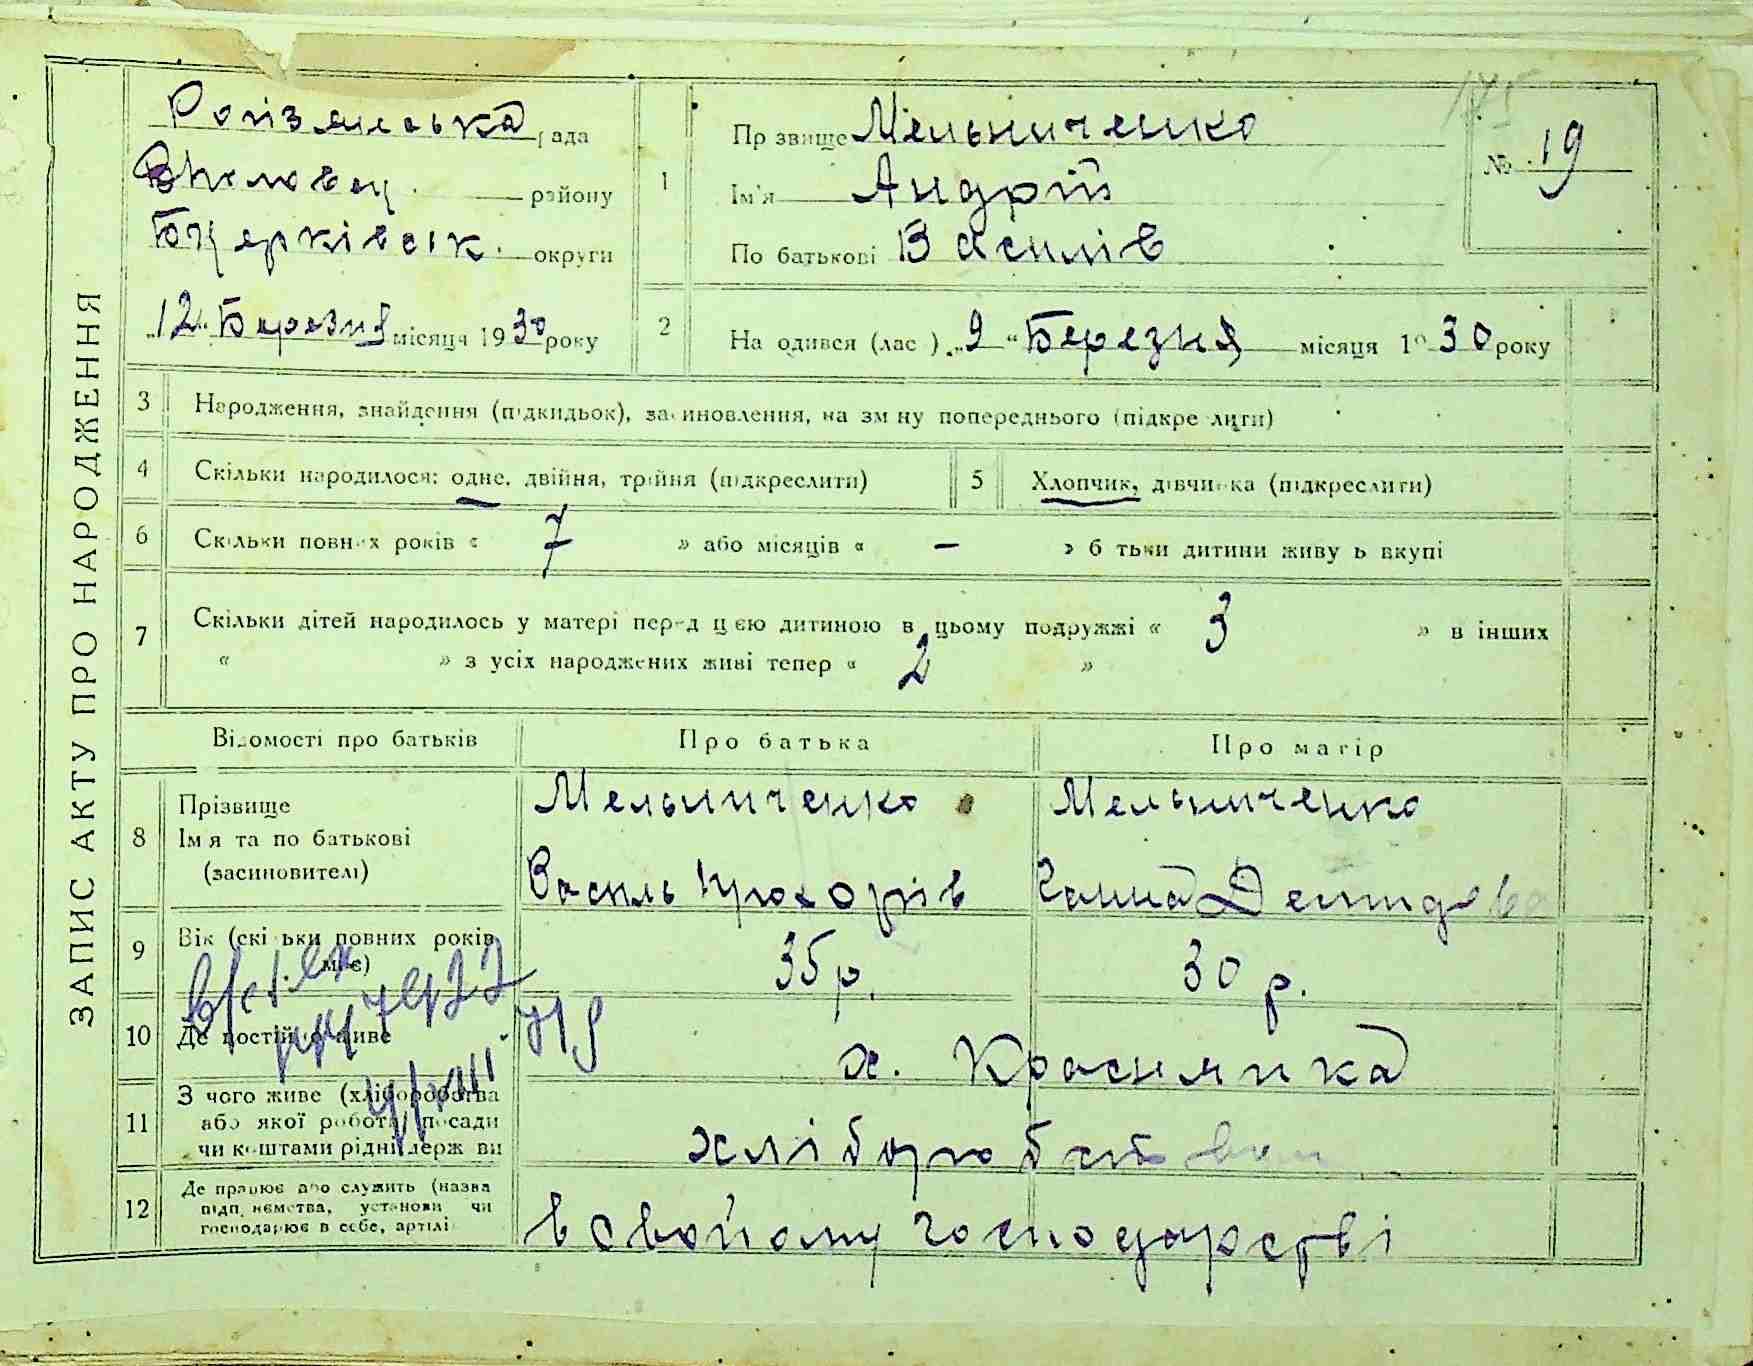 ЗАПИС АКТУ ПРО НАРОДЖЕННЯ
рада
району
Бцерківськ. округи
„12„ Березня місяця 1930 року
1 Прізвище Мельниченко
Ім'я Андрій
По батькові Василів
№ 19
175
2 На одився (лас ) „9“ Березня місяця 1930 року
3 Народження, знайдення (підкидьок), засиновлення, на зм ну попереднього (підкре лити)
4 Скільки народилося: одне, двійня, трійня (підкреслити)
5 Хлопчик, дівчинка (підкреслити)
6 Скільки повних років « 7 » або місяців « — » б тьки дитини живу ь вкупі
7 Скільки дітей народилось у матері перед цією дитиною в цьому подружжі « 3 » в інших
« » з усіх народжених живі тепер « 2 »
Відомості про батьків Про батька Про матір
8 Прізвище
Ім я та по батькові
(засиновителі)
Мельниченко Мельниченко
Василь Прохорів Ганна Демидова
9 Вік (скільки повних років
має)
35 р. 30 р.
10 Де постійно живе
х. Краснянка
11 З чого живе (хліборобства
або якої роботи, посади
чи коштами рідні держ ви
хліборобством
12 Де працює або служить (назва
підп иємства, установи чи
господарює в себе, артілі
в свойому господарстві